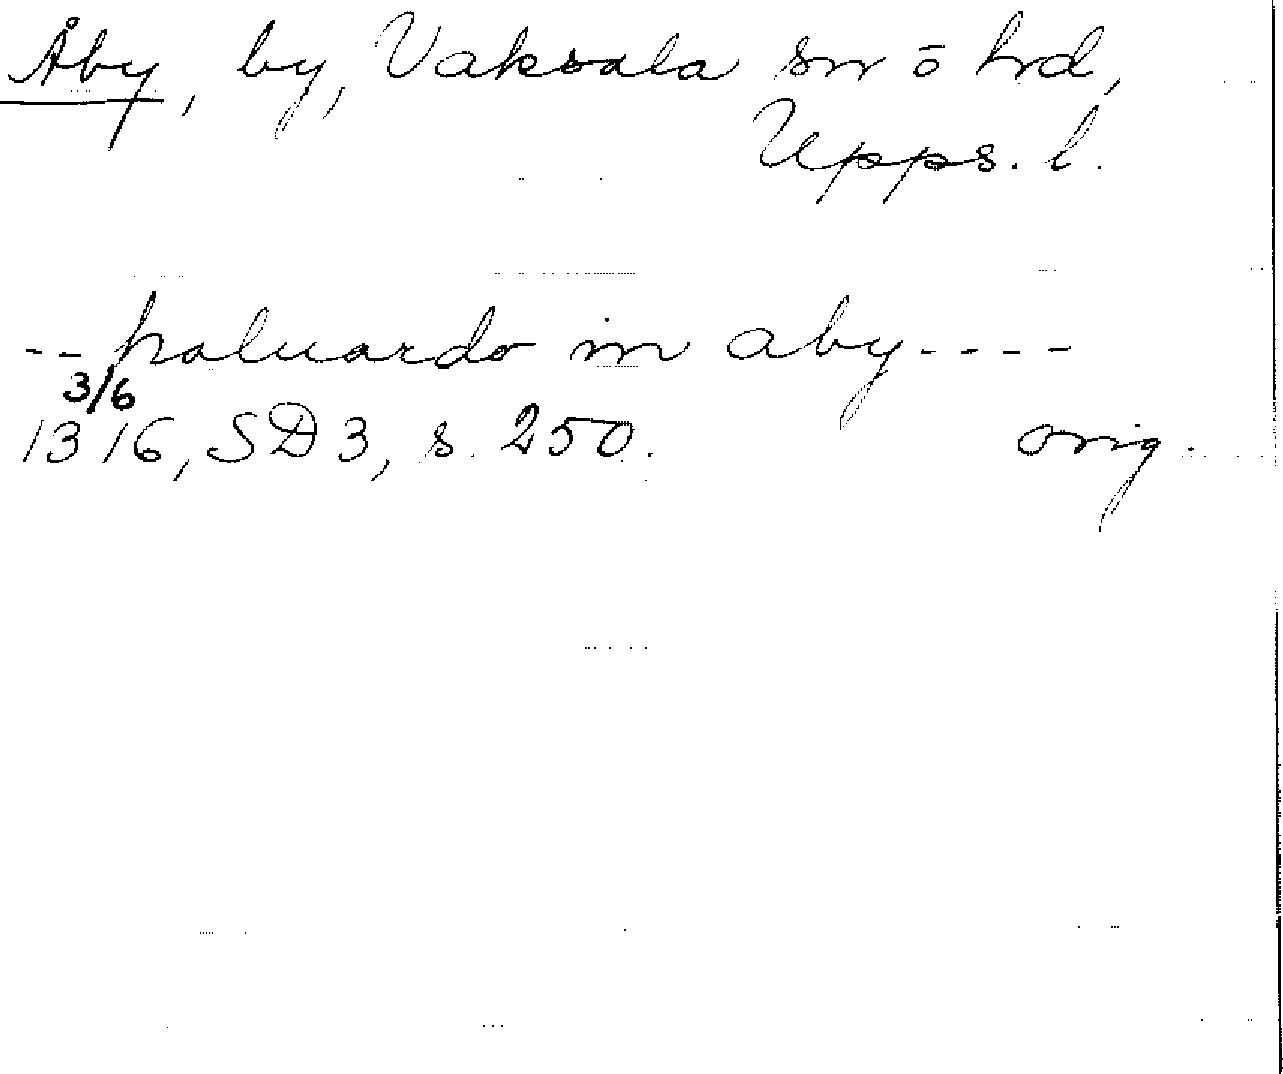 Åby, by, Vaksala sn ō hrd,
Upps. l.
-- haluardo in aby ----
3/6
1316, SD 3, s. 250. orig.